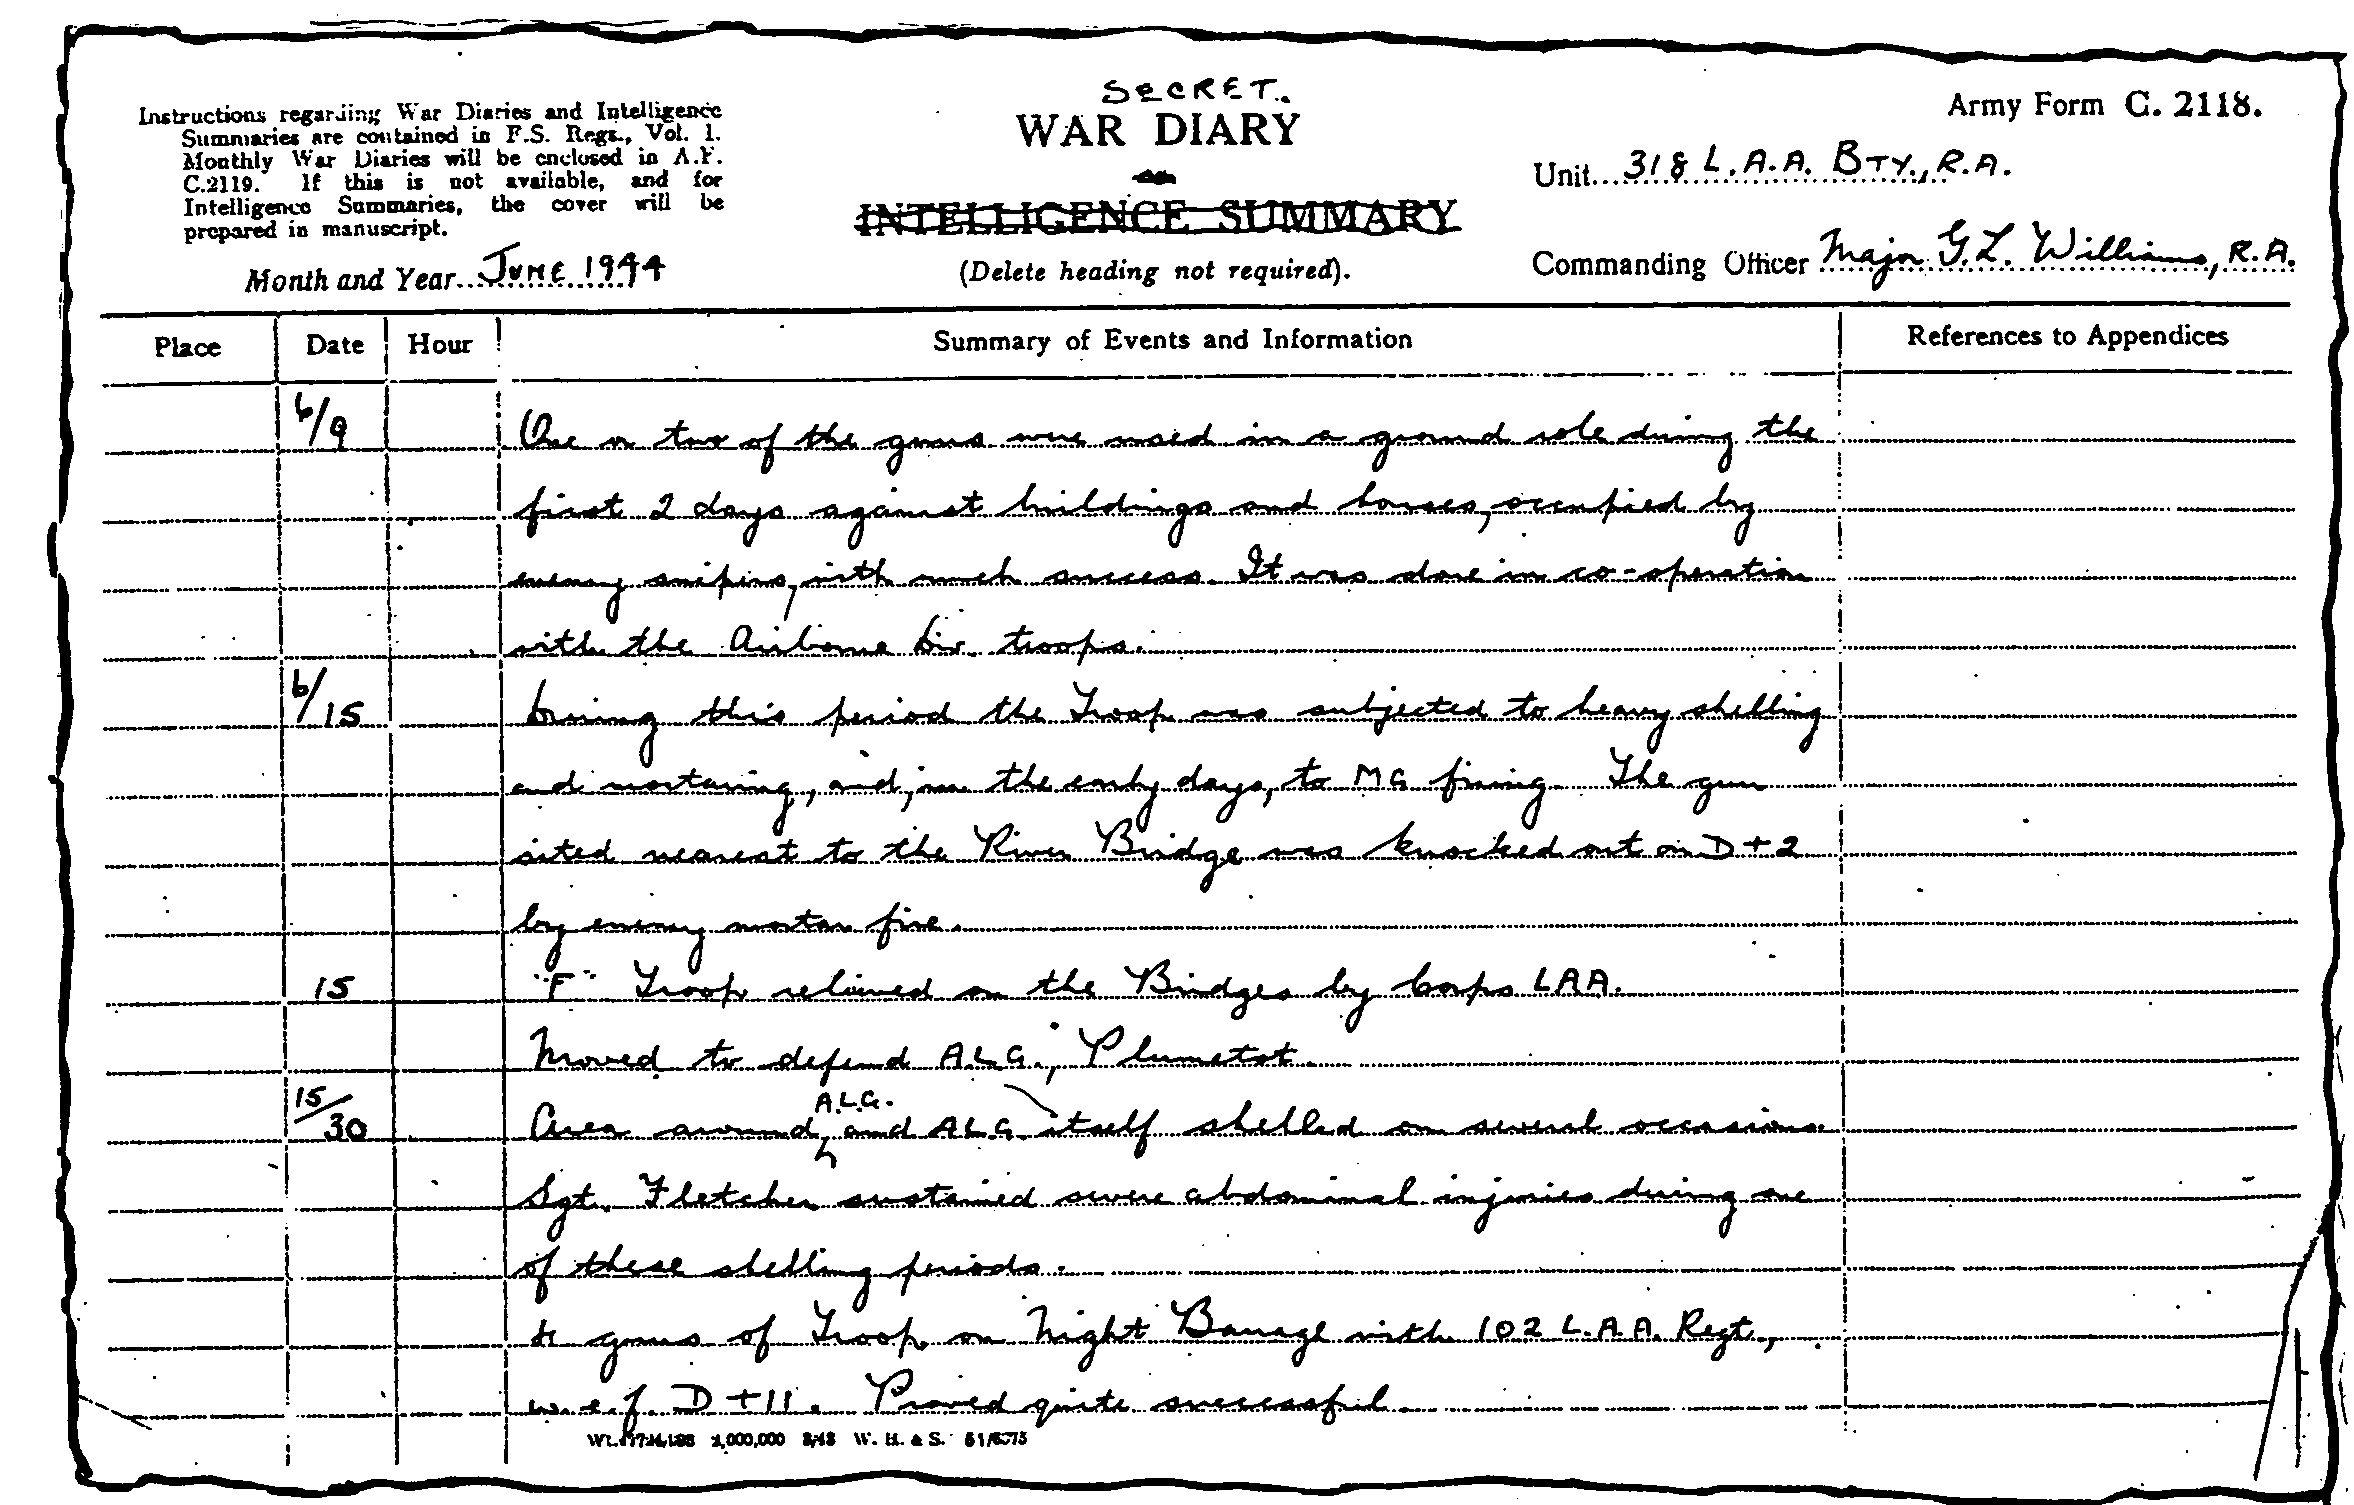 SECRET.
Instructions regarding War Diaries and Intelligence
Summaries are contained in F.S. Regs., Vol. 1.
Monthly War Diaries will be enclosed in A.F.
C.2119. If this is not available, and for
Intelligence Summaries, the cover will be
prepared in manuscript.
Month and Year JUNE 1944
WAR DIARY
INTELLIGENCE SUMMARY
(Delete heading not required).
Army Form C. 2118.
Unit 318 L.A.A. BTY., R.A.
Commanding Officer Major G.L. Williams, R.A.
Place Date Hour Summary of Events and Information References to Appendices
6/9 One or two of the guns were used in a ground role during the
first 2 days against buildings and houses, occupied by
enemy snipers, with much success. It was done in co-operation
with the Airborne Div. troops.
6/15 During this period the Troop was subjected to heavy shelling
and mortaring, and, in the early days, to MG firing. The gun
sited nearest to the River Bridge was knocked out on D+2
by enemy mortar fire.
15 "F" Troop relieved on the Bridges by Corps LAA.
Moved to defend A.L.G., Plumetot.
A.L.G.
15/30 Area around, and A.L.G. itself shelled on several occasions.
Sgt. Fletcher sustained severe abdominal injuries during one
of these shelling periods.
4 guns of Troop on Night Barrage with 102 L.A.A. Regt.,
w.e.f. D+11. Proved quite successful.
1,000,000 W. H. & S.